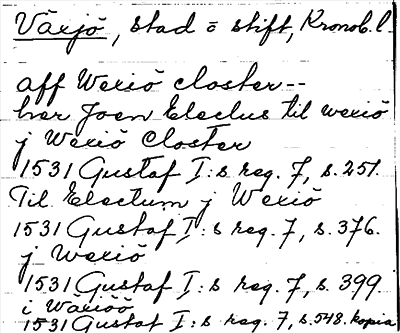 Växjö, stad o stift, Kronob. l.
aff Wexiö closter--
her Joen Electus til wexiö
j Wexiö Closter
1531 Gustaf I:s reg. 7, s. 251.
Til Electum j Wexiö
1531 Gustaf I:s reg. 7, s. 376.
j Wexiö
1531 Gustaf I:s reg. 7, s. 399.
i Wäxiöö
1531 Gustaf I:s reg. 7, s. 548. kopia